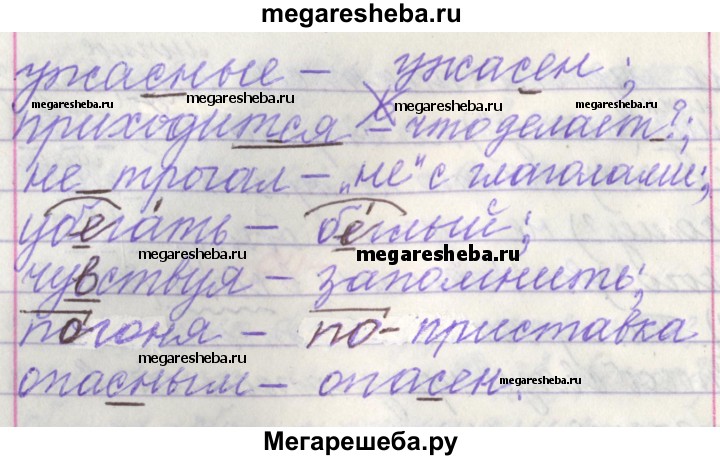 megaresheba.ru
ужасные – ужасен;
megaresheba.ru megaresheba.ru megaresheba.ru
приходится – что делает?;
не трогал – „не" с глаголами;
megaresheba.ru megaresheba.ru
убегать – беглый;
megaresheba.ru
чувствуя – запомнить;
megaresheba.ru
погоня – по- приставка
megaresheba.ru
опасным – опасен.
megaresheba.ru
Мегарешеба.ру